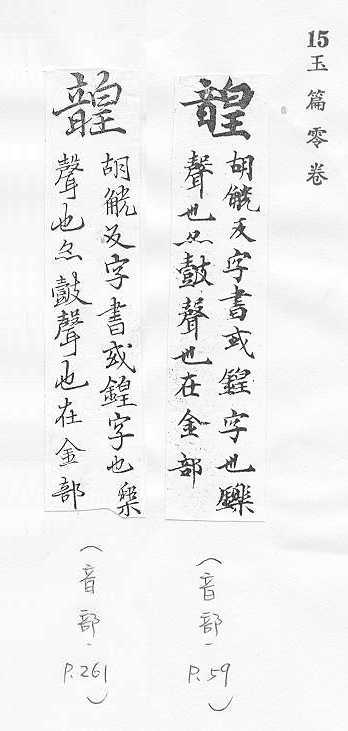 15 玉篇零卷
韹
胡觥反字書或鍠字也
聲也亦鼓聲也在金部
（音部，P.59）
韹
胡觥反字書或鍠字也樂
聲也亦鼓聲也在金部
（音部，P.261）